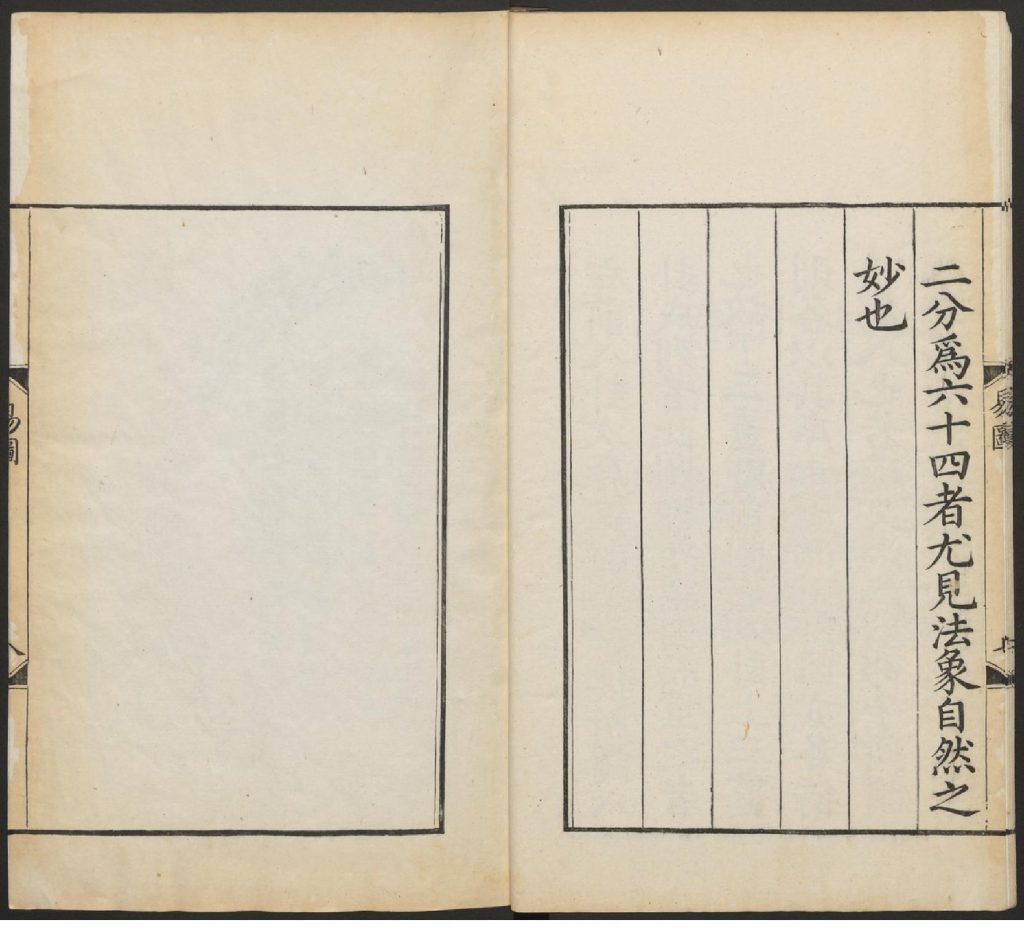 二分爲六十四者尤見法象自然之
妙也
易圖
易圖
八